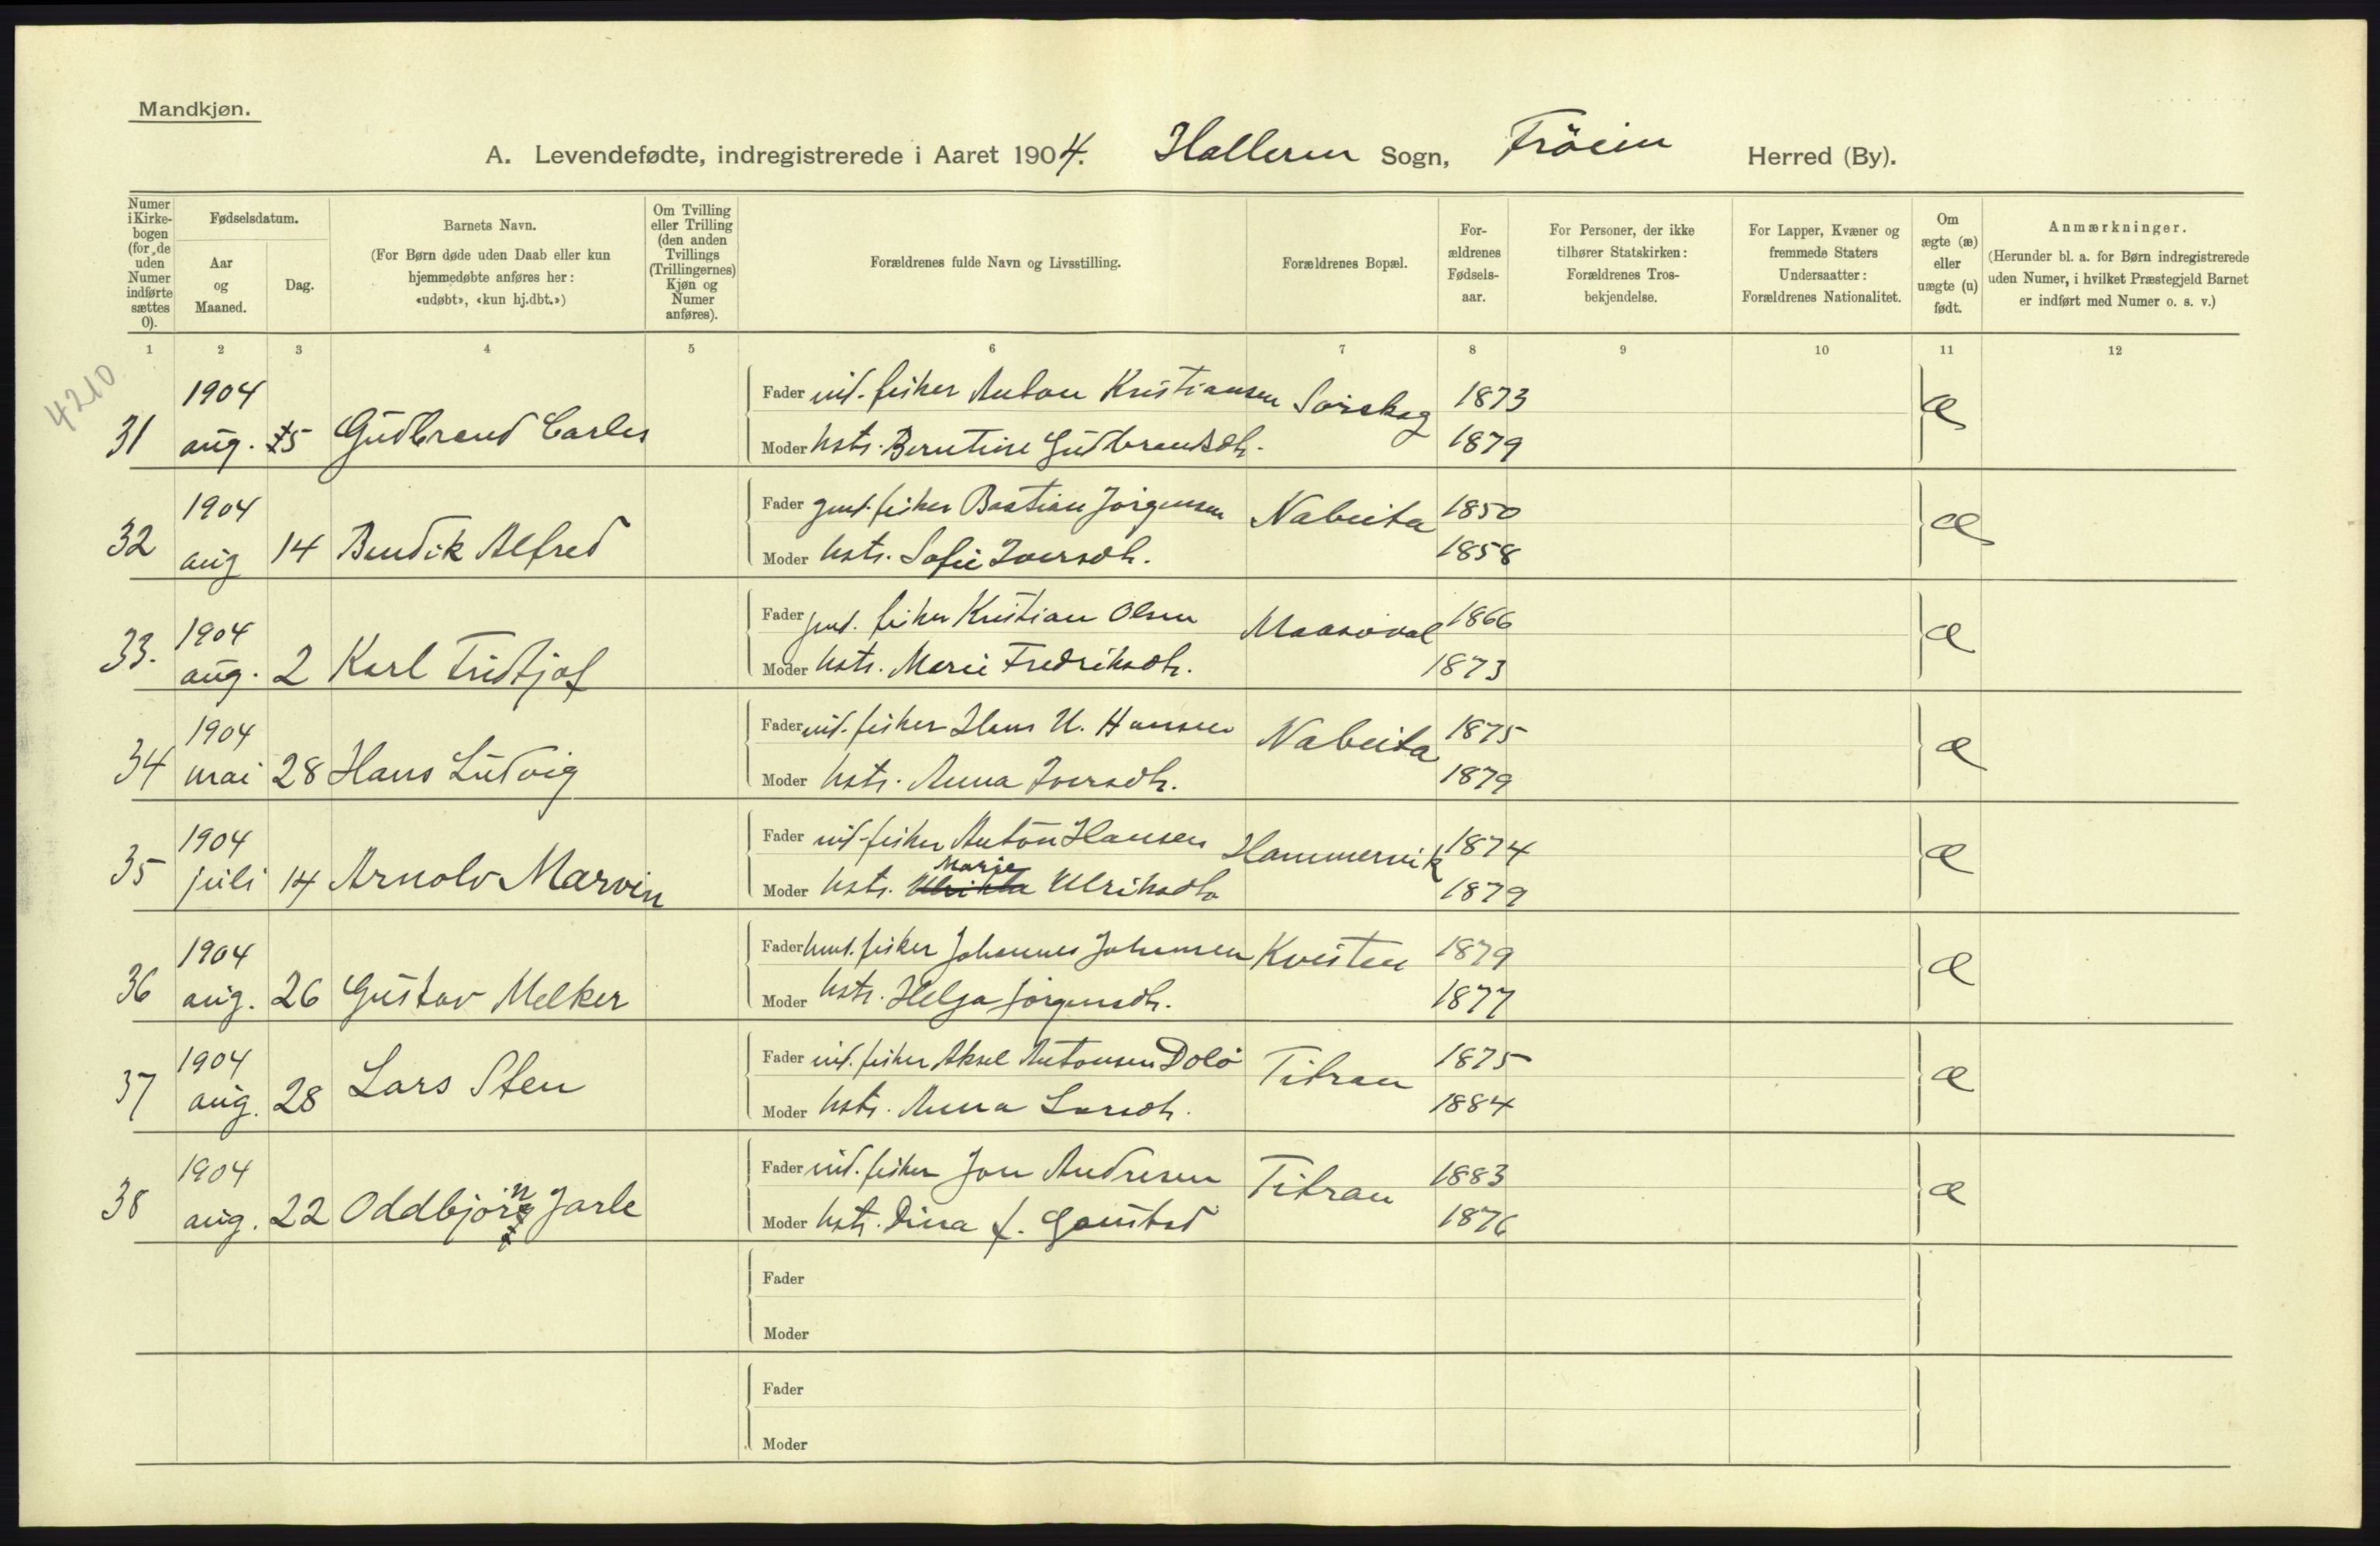 Mandkjøn.
A. Levendefødte, indregistrerede i Aaret 1904. Halleren Sogn, Fröien Herred (By).
Numer i Kirkebogen (for de uden Numer indførte sættes 0).
Fødselsdatum.
Aar og Maaned.
Dag.
Barnets Navn.
(For Børn døde uden Daab eller kun hjemmedøbte anføres her: «udøbt», «kun hj.dbt.»)
Om Tvilling eller Trilling (den anden Tvillings (Trillingernes) Kjøn og Numer anføres).
Forældrenes fulde Navn og Livsstilling.
Forældrenes Bopæl.
Forældrenes Fødselsaar.
For Personer, der ikke tilhører Statskirken: Forældrenes Trosbekjendelse.
For Lapper, Kvæner og fremmede Staters Undersaatter: Forældrenes Nationalitet.
Om ægte (æ) eller uægte (u) født.
Anmærkninger.
(Herunder bl. a. for Børn indregistrerede uden Numer, i hvilket Præstegjeld Barnet er indført med Numer o. s. v.)
1 2 3 4 5 6 7 8 9 10 11 12
4210
31 1904 aug. 5 Gudbrand Carles
Fader ind. fisker Anton Kristiansen Sørskag 1873 æ
Moder hstr. Berntine Gudbrandsdtr. 1879
32 1904 aug 14 Bendik Alfred
Fader gmd. fisker Bastian Jörgensen Nabeita 1850 æ
Moder hstr. Sofie Iversdtr. 1858
33. 1904 aug. 2 Karl Fridtjof
Fader gmd. fisker Kristian Olsen Maasöval 1866 æ
Moder hstr. Merie Fredriksdtr. 1873
34 1904 mai 28 Hans Ludvig
Fader ind. fisker Hans U. Hansen Nabeita 1875 æ
Moder hstr. Anna Iversdtr. 1879
35 1904 juli 14 Arnolv Marvin
Fader ind. fisker Anton Hansen Hammervik 1874 æ
Moder hstr. Ulrikka Marie Ulriksdtr 1879
36 1904 aug. 26 Gustav Melker
Fader hmd. fisker Johannes Johansen Kvisten 1879 æ
Moder hstr. Helga Jörgensdtr. 1877
37 1904 aug. 28 Lars Sten
Fader ind. fisker Aksel Antonsen Dolö Titran 1875 æ
Moder hstr. Anna Larsdtr. 1884
38 1904 aug. 22 Oddbjörn Jarle
Fader ind. fisker Jon Andresen Titran 1883 æ
Moder hstr. Dina f. Gaustad 1876
Fader
Moder
Fader
Moder